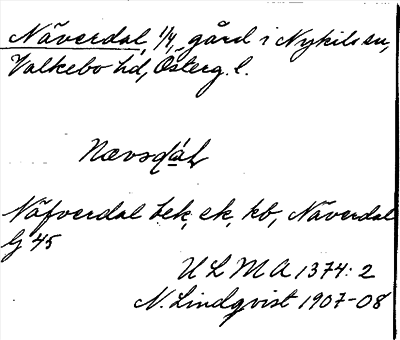 Näverdal, 1/4, gård i Nykils sn,
Valkebo hd, Österg. l.
Nævsdál
Näfverdal bek, ek, kb, Näverdal
G 45
U L M A 1374: 2
N. Lindqvist 1907-08